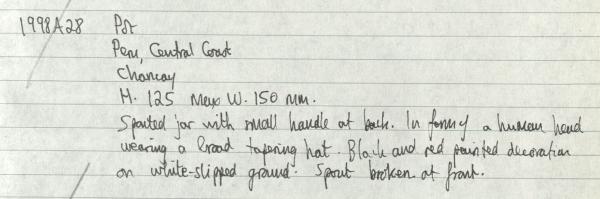 1998A28 Pot
Peru, Central Coast
Chancay
H. 125 Max W. 150 mm.
Spouted jar with small handle at back. In form of a human head
wearing a broad tapering hat. Black and red painted decoration
on white-slipped ground. Spout broken at front.